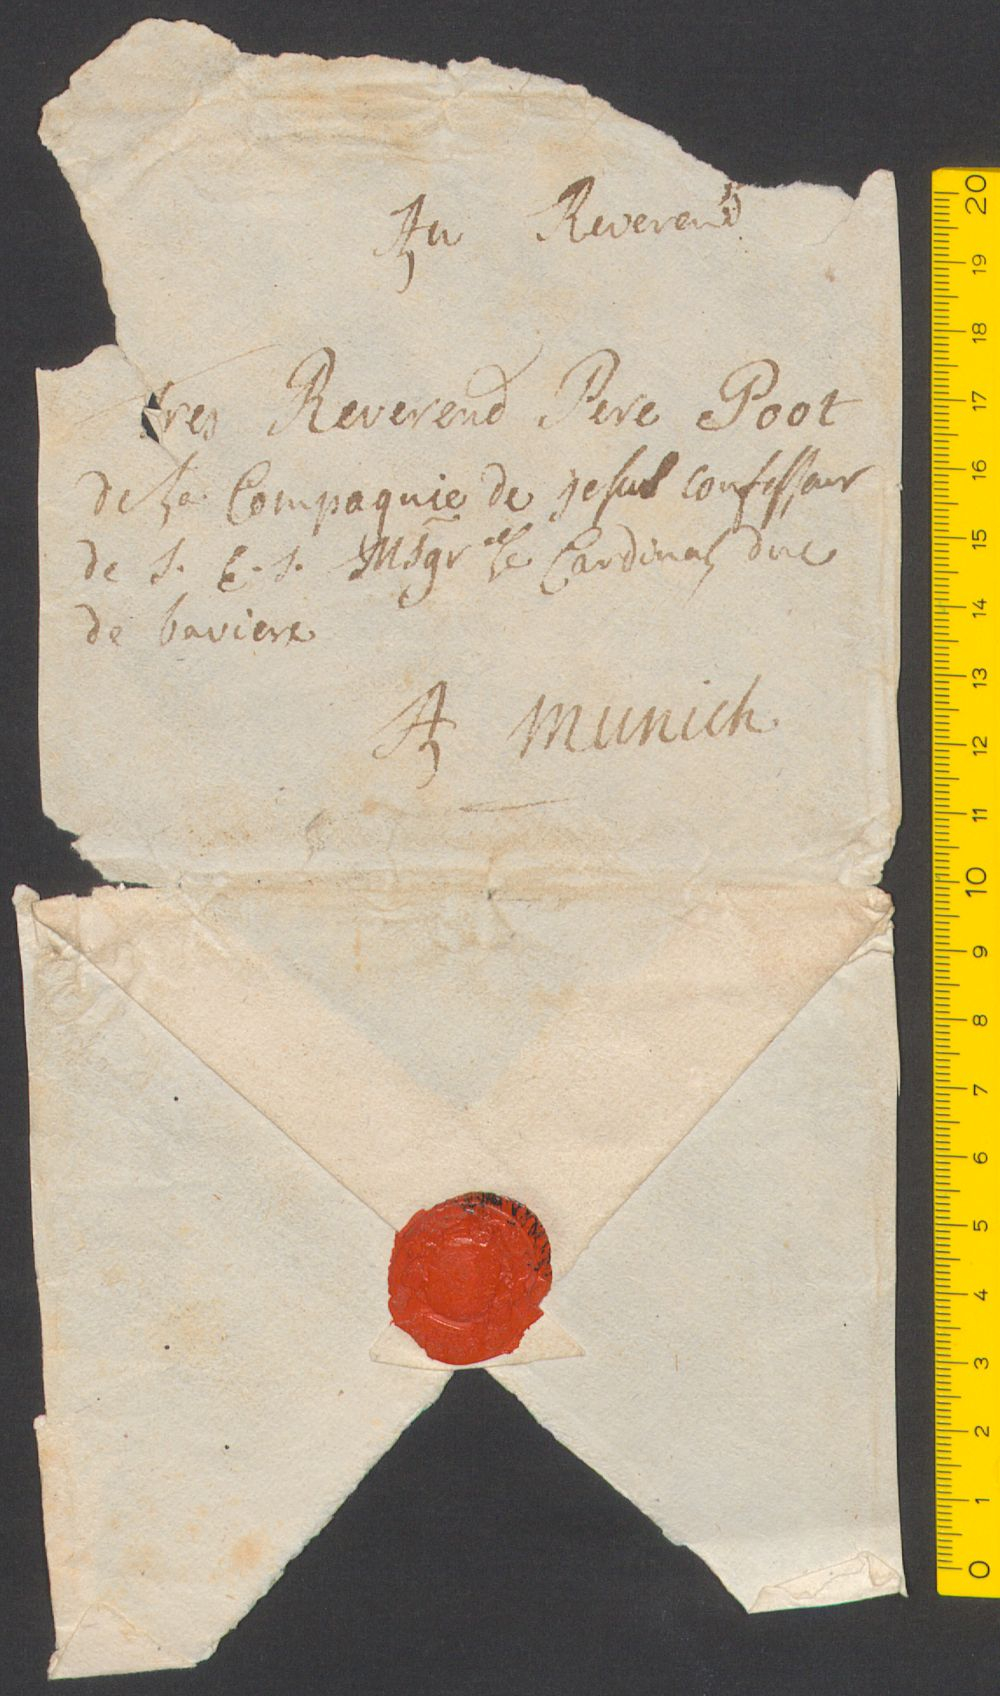 Au Reverend
tres Reverend Pere Poot
de la Compagnie de jesus confesseur
de S. E. S. Msgr le Cardinal duc
de baviere
A Munich
20
19
18
17
16
15
14
13
12
11
10
9
8
7
6
5
4
3
2
1
0